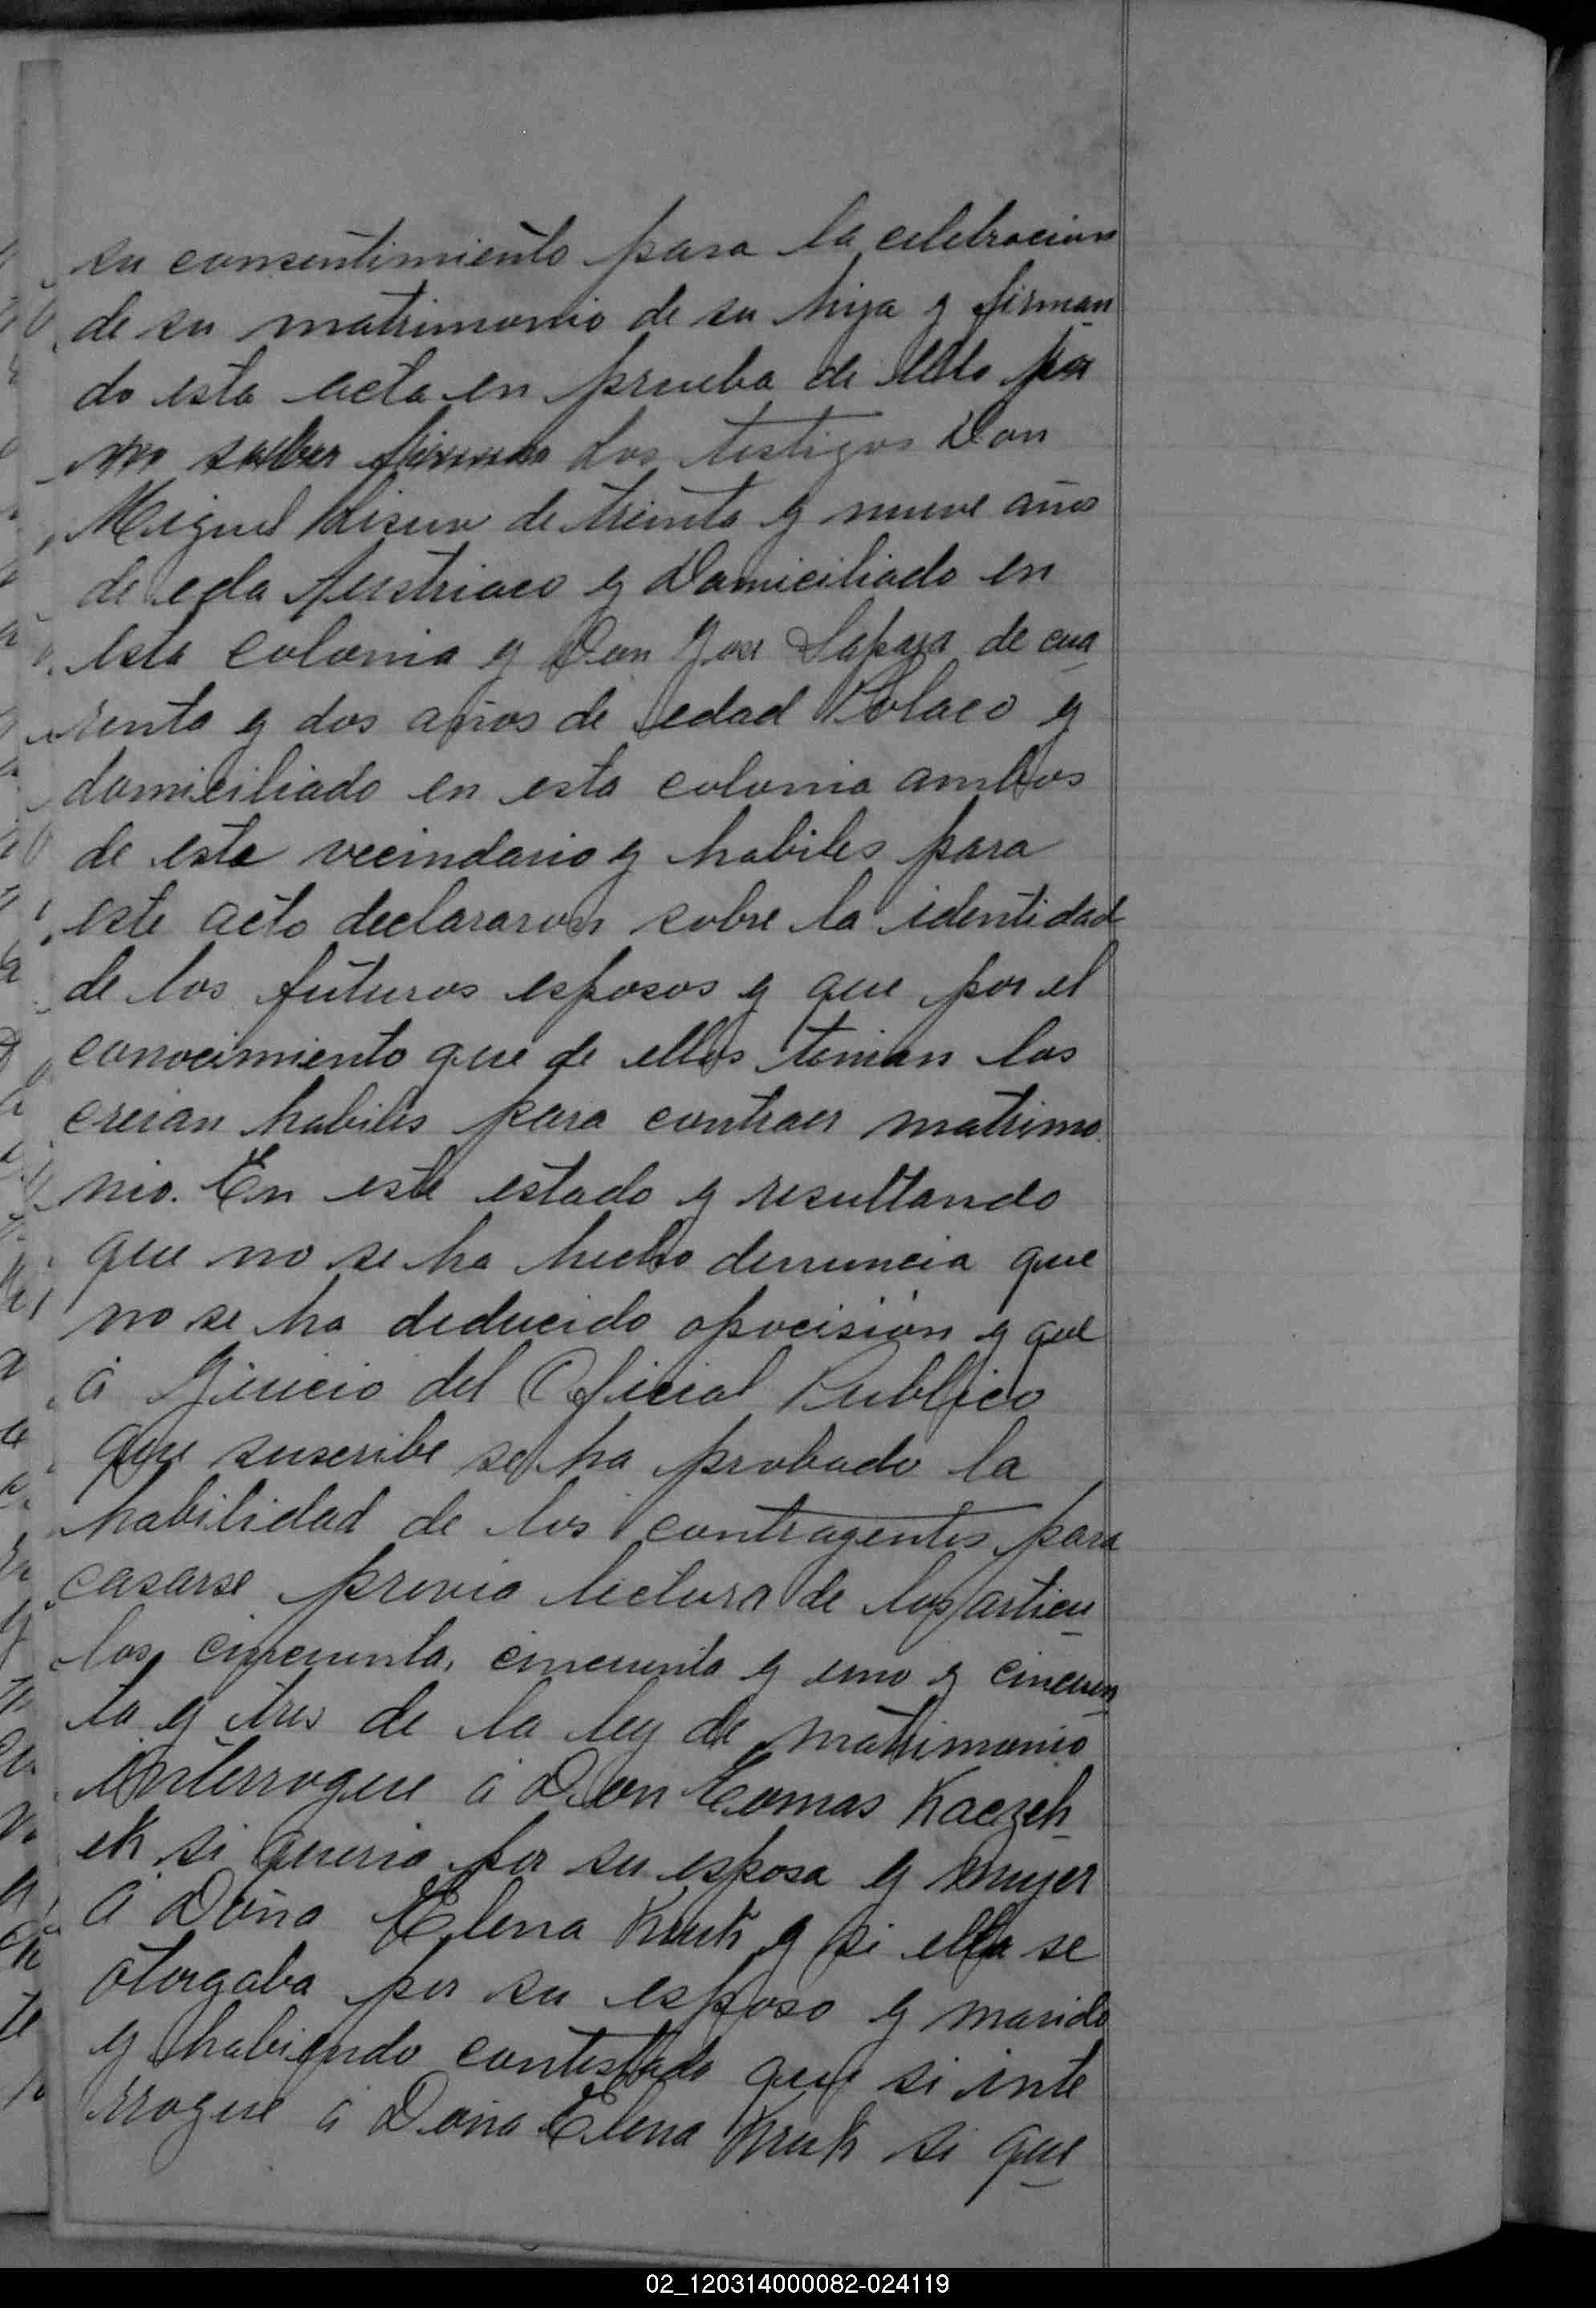 su consentimiento para la celebracion
de su matrimonio de su hija y firman
do esta acta en prueba de ello por
no saber firmar los testigos Don
Miguel de treinta y nueve años
de eda Austriaco y Domiciliado en
esta colonia y Don Jose Sapaya de cua
renta y dos años de edad Polaco y
domiciliado en esta colonia ambos
de este vecindario y habiles para
este acto declararon sobre la identidad
de los futuros esposos y que por el
conocimiento que de ellos tenian los
creian habiles para contraer matrimo
nio. En este estado y resultando
que no se ha hecho denuncia que
no se ha deducido opocisión y que
á Juicio del Oficial Publico
que suscribe se ha probado la
habilidad de los contragentes para
casarse previo lectura de los articu
los cincuenta, cincuenta y uno y cincuen
ta y tres de la ley de matrimonio
interrogue á Don Tomas Kaczeh
ek si queria por su esposa y mujer
á Doña Elena Kruk y si ella se
otorgaba por su esposo y marido
y habiendo contestado que si inte
rrogue á Doña Elena Kruk si que
02_120314000082-024119